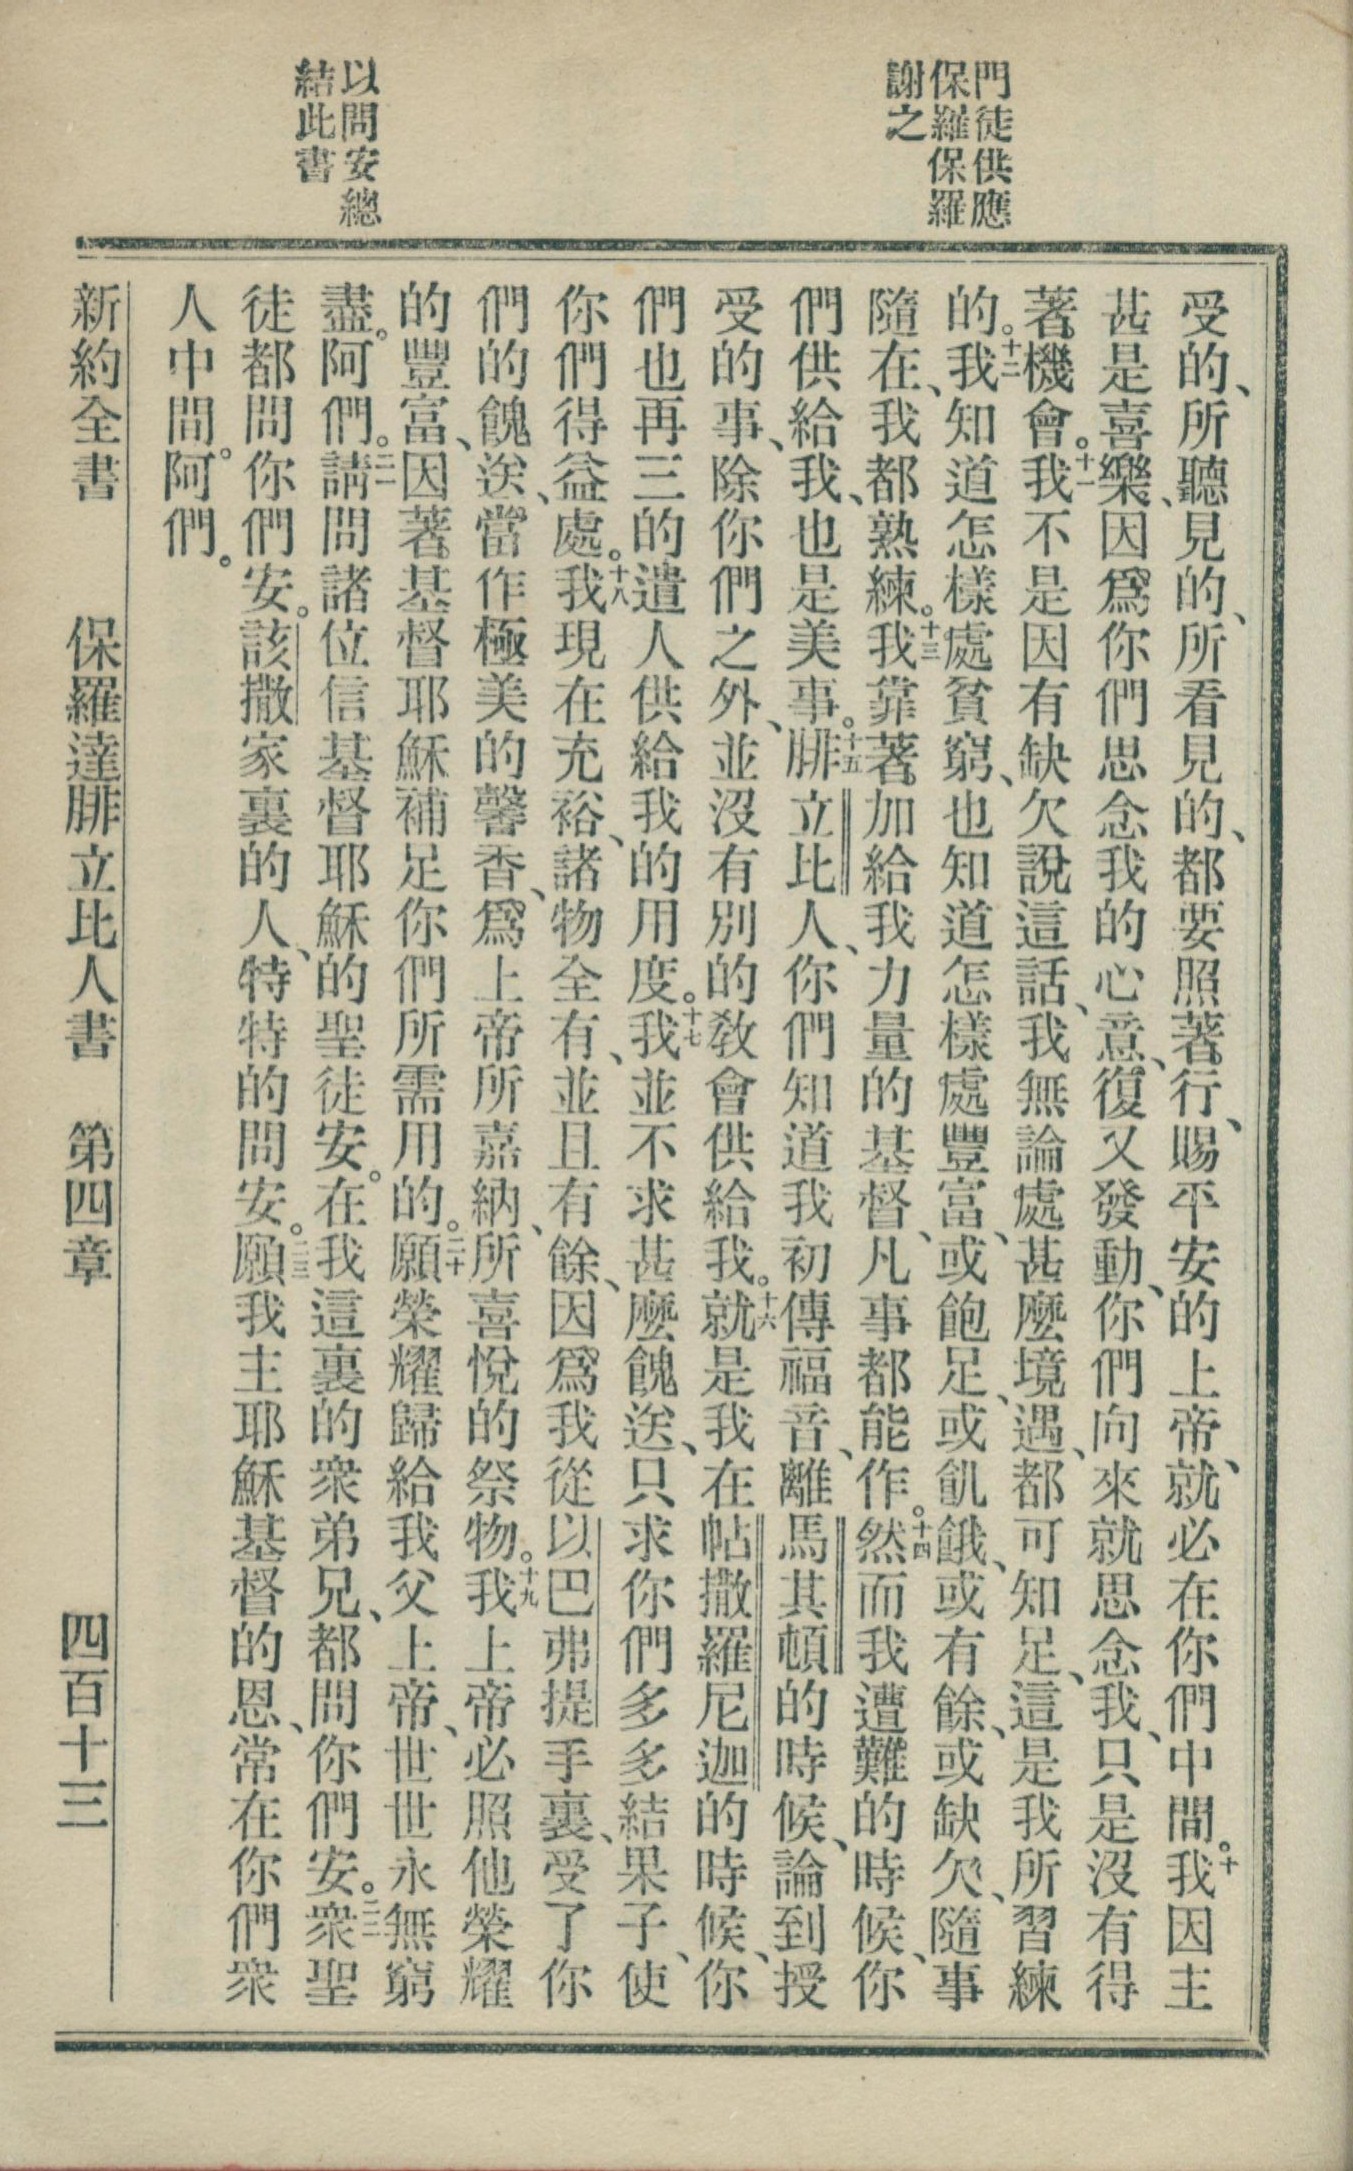 門徒供應
保羅保羅
謝之
以問安總
結此書
受的、所聽見的、所看見的、都要照著行、賜平安的上帝、就必在你們中間。十我因主
甚是喜樂、因爲你們思念我的心意、復又發動、你們向來就思念我、只是沒有得
著機會。十一我不是因有缺欠說這話、我無論處甚麼境遇、都可知足、這是我所習練
的。十二我知道怎樣處貧窮、也知道怎樣處豐富、或飽足、或飢餓、或有餘、或缺欠、隨事
隨在、我都熟練。十三我靠著加給我力量的基督、凡事都能作。十四然而我遭難的時候、你
們供給我、也是美事。十五腓立比人、你們知道我初傳福音、離馬其頓的時候、論到授
受的事、除你們之外、並沒有別的教會供給我。十六就是我在帖撒羅尼迦的時候、你
們也再三的遣人供給我的用度。十七我並不求甚麼餽送、只求你們多多結果子、使
你們得益處。十八我現在充裕、諸物全有、並且有餘、因爲我從以巴弗提手裏、受了你
們的餽送、當作極美的馨香、爲上帝所嘉納、所喜悅的祭物。十九我上帝必照他榮耀
的豐富、因著基督耶穌補足你們所需用的。二十願榮耀歸給我父上帝、世世永無窮
盡。阿們。二一請問諸位信基督耶穌的聖徒安。在我這裏的衆弟兄、都問你們安。二二衆聖
徒都問你們安。該撒家裏的人、特特的問安。二三願我主耶穌基督的恩、常在你們衆
人中間。阿們。
新約全書　保羅達腓立比人書　第四章　四百十三